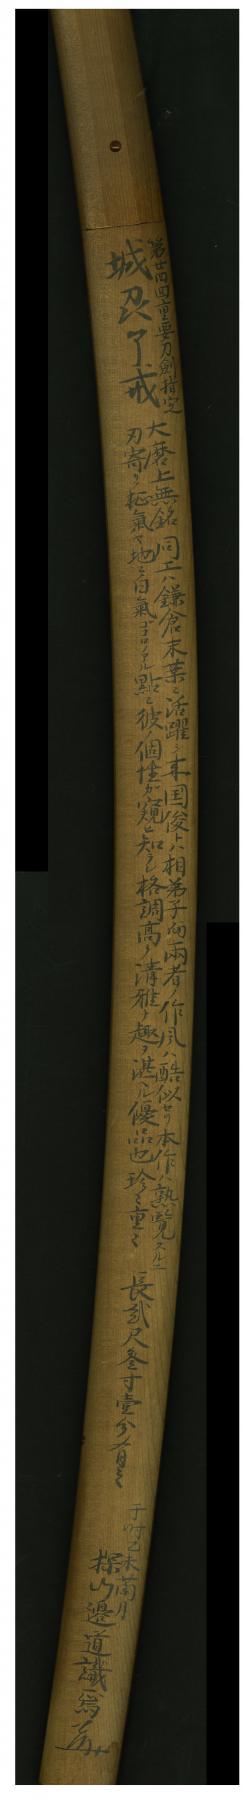 第廿四回重要刀剣指定
城州了戒
大磨上無銘 同工ハ鎌倉末葉ニ活躍シ来国俊トハ相弟子而両者ノ作風ハ酷似セリ 本作ハ熟覧スルニ
刃寄リ柾気ヤ地ニ白気ゴコロノアル點ニ彼ノ個性ガ窺ヒ知ラレ格調高ク清雅ノ趣ヲ湛ヘル優品也 珍々重々
長貳尺叄寸壹分有之
于時乙未蘭月
探山邉道識焉